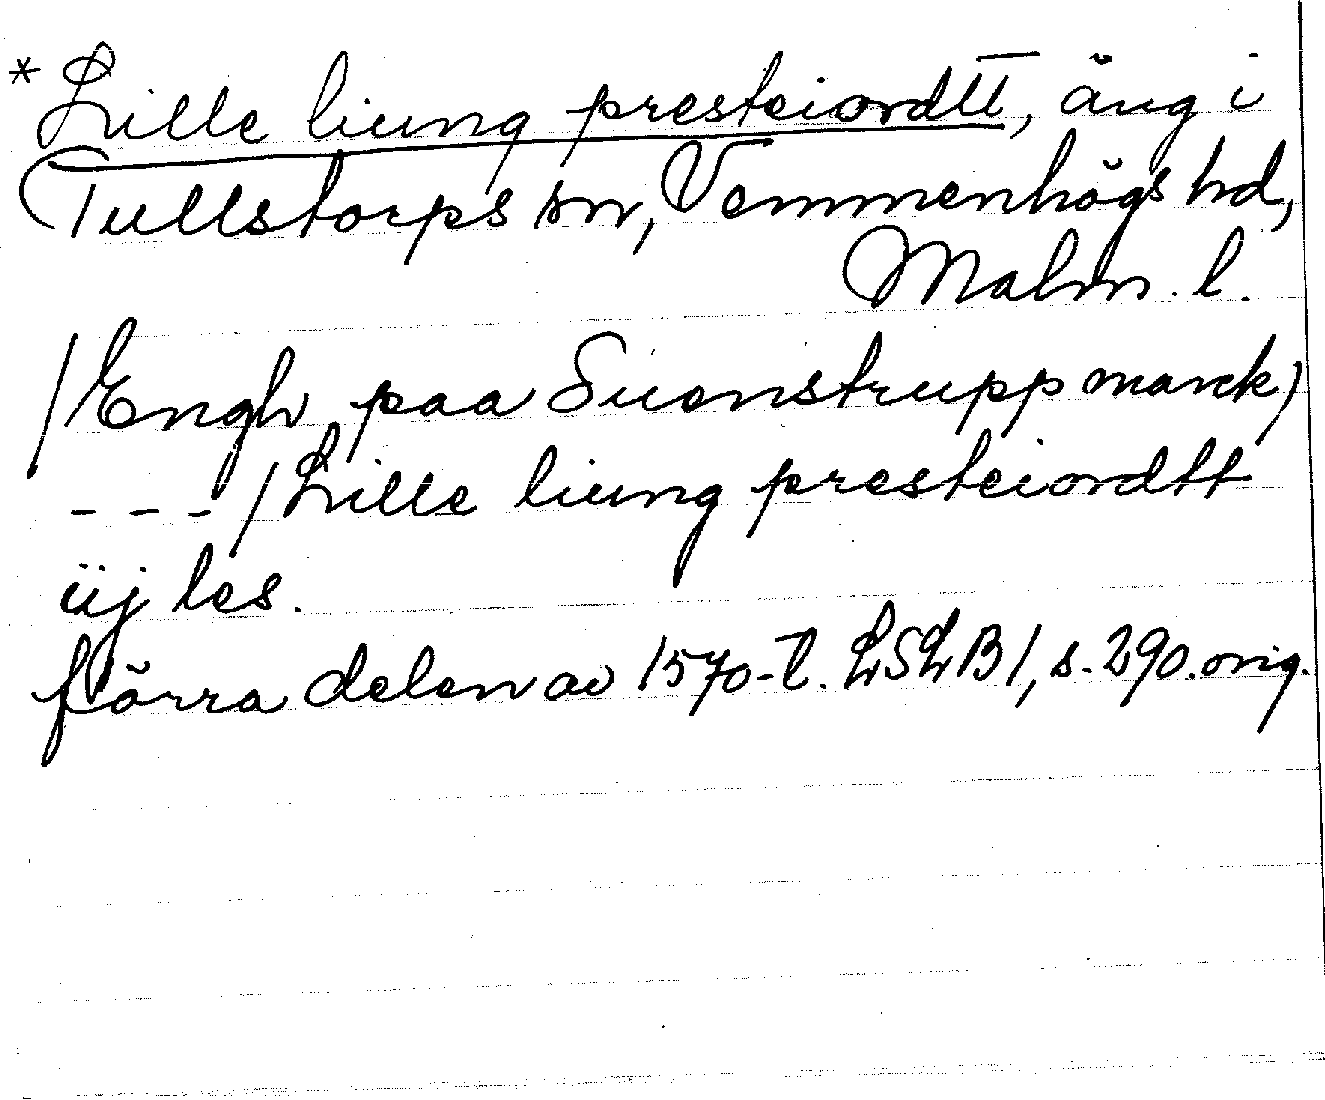 * Lille liung presteiordtt, äng i
Tullstorps sn, Vemmenhögs hd,
Malm. l.
/Engh paa Suenstrupp marck/
- - - / Lille liung presteiordtt
iij les.
förra delen av 1570-t. LSLB1, s. 290. orig.